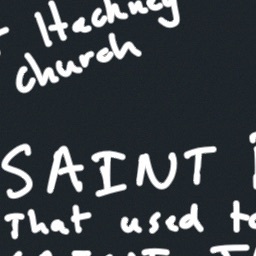 Hackney
church
SAINT
That used to